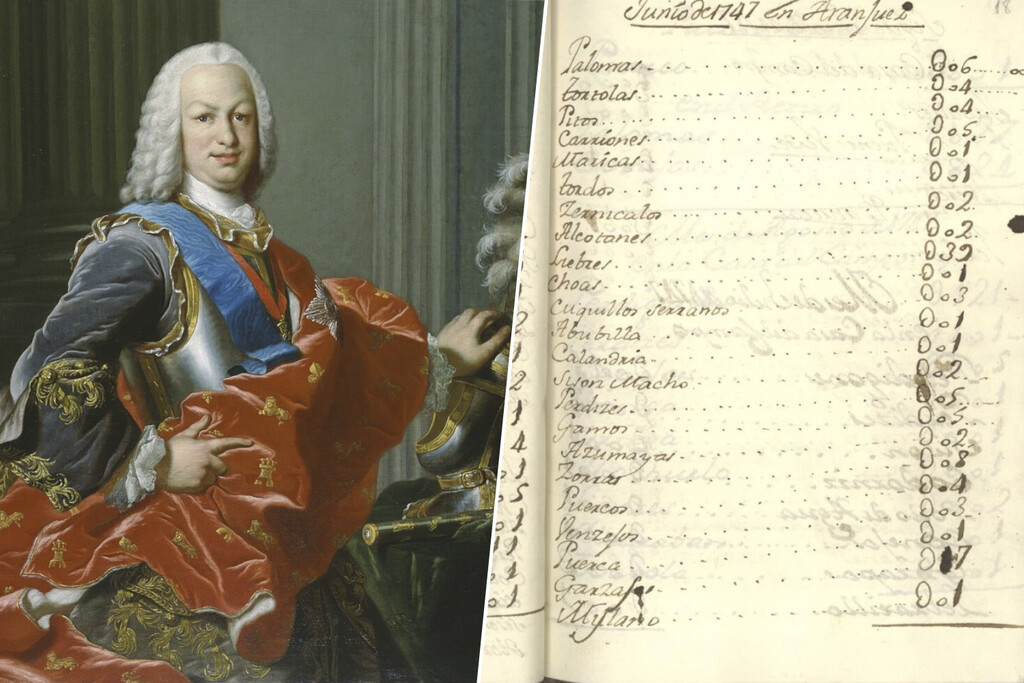 Junio de 1747 en Aranjuez
18
Palomas 006
tortolas 004
Pitos 004
Carriones 005
Maricas 001
tordos 001
Zernicalos 002
Alcotanes 002
Liebres 039
Choas 001
Cuquillos serranos 003
Abubilla 001
Calandria 001
Sison Macho 002
Perdizes 005
Gamos 005
Azumayas 002
Zorras 008
Puercos 004
Venzejos 003
Puerca 001
Garzasas 017
Mylano 001